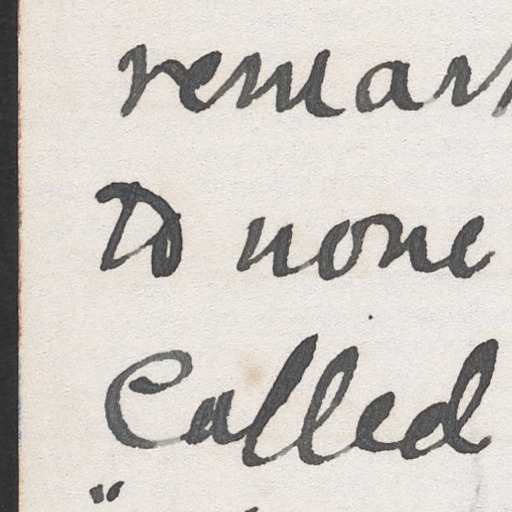 remar
to none
Called
"